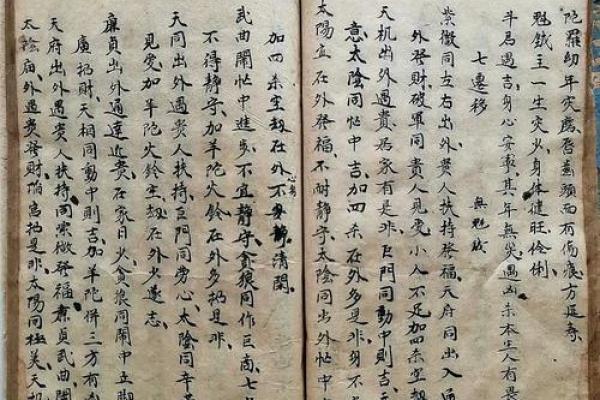 陀羅幼年災應唇齒頭面有傷痕方延壽
魁鉞主一生災少身體健旺伶俐
斗君遇吉身心安寧其年無災遇凶杀本生人有畏
七遷移 無魁鉞
紫微同左右出外貴人扶持發福天府同出入通
外發財破軍同貴人見愛小人不足加四杀空劫
天机出外遇貴居家有是非巨門同動中則吉
意太陰同忙中吉加四杀在外多是非身不
太陽宜在外發福不耐静守太陰同出外忙中
加四杀空劫在外不身静清閑
武曲鬧忙中進步不宜静守貪狼同作巨商七
不得静守加羊陀火鈴在外多招是非
天同出外遇貴人扶持巨門同勞心太陰同辛
見愛加羊陀火鈴空劫在外少遂志
廉貞出外通達近貴在家日少貪狼同鬧中立脚
廣招財天相同動中則吉加羊陀併三方有
天府出外遇貴人扶持同紫微發福廉貞武曲鬧
太陰庙外遇貴發財陷宫招是非太陽同極美天机